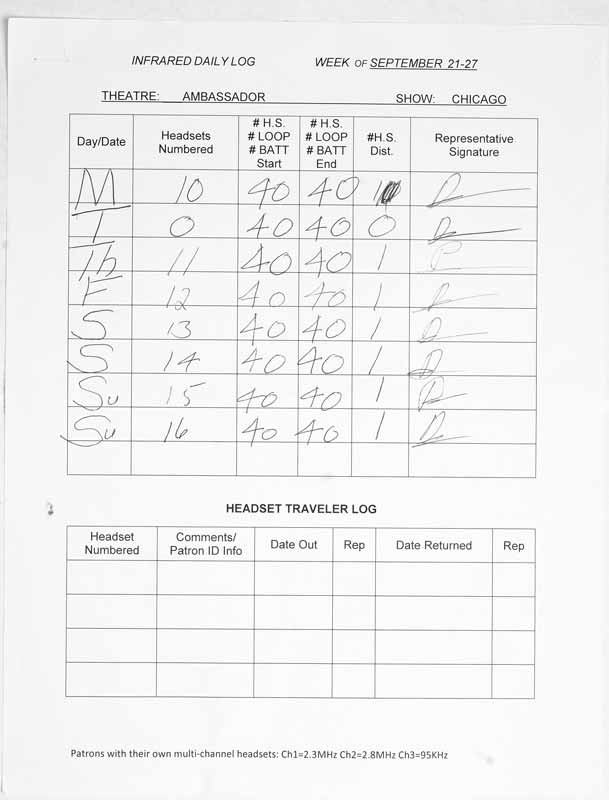 INFRARED DAILY LOG WEEK OF SEPTEMBER 21-27
THEATRE: AMBASSADOR SHOW: CHICAGO
Day/Date Headsets Numbered # H.S. # LOOP # BATT Start # H.S. # LOOP # BATT End #H.S. Dist. Representative Signature
M 10 40 40 1
T 0 40 40 0
Th 11 40 40 1
F 12 40 40 1
S 13 40 40 1
S 14 40 40 1
Su 15 40 40 1
Su 16 40 40 1
HEADSET TRAVELER LOG
Headset Numbered Comments/ Patron ID Info Date Out Rep Date Returned Rep
Patrons with their own multi-channel headsets: Ch1=2.3MHz Ch2=2.8MHz Ch3=95KHz